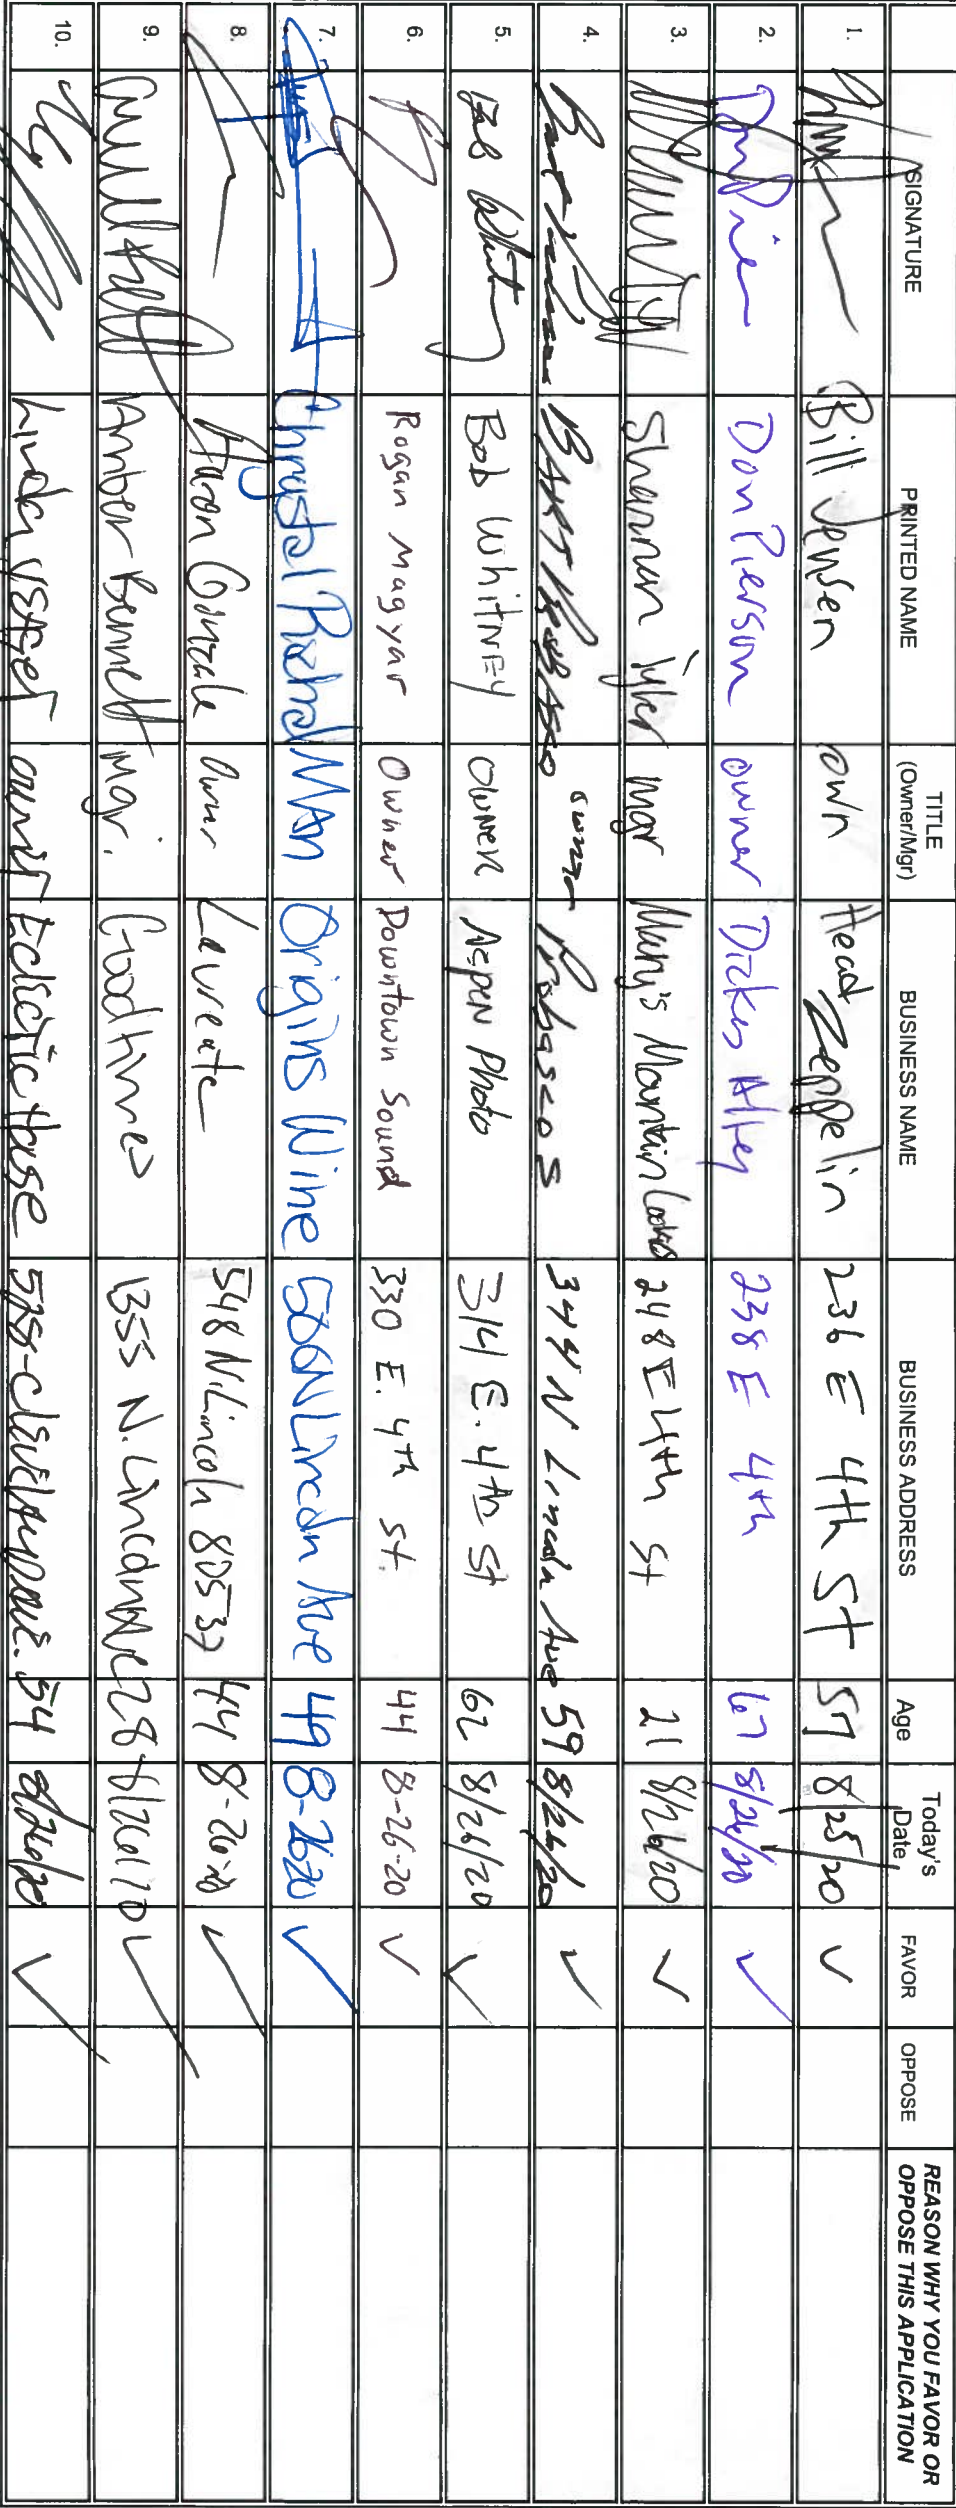 SIGNATURE PRINTED NAME TITLE (Owner/Mgr) BUSINESS NAME BUSINESS ADDRESS Age Today's Date FAVOR OPPOSE REASON WHY YOU FAVOR OR OPPOSE THIS APPLICATION
1. Bill Jensen own Head Zeppelin 236 E 4th St 57 8/25/20 ✓
2. Don Pierson owner Dickes Alley 238 E 4th 67 8/26/20 ✓
3. Shannon Tyler mgr Mary's Mountain Cookies 248 E 4th St 21 8/26/20 ✓
4. BART owner 344 N Lincoln Ave 59 8/26/20 ✓
5. Bob Whitney Bob WhitNEy OWNER Aspen Photo 314 E. 4th St 62 8/26/20 ✓
6. Rogan Magyar Owner Downtown Sound 330 E. 4th st. 44 8-26-20 ✓
7. Chrystel Man Origins Wine 500 N Lincoln Ave 49 8-26-20 ✓
8. Aaron Owner Laureate 548 N. Lincoln 80537 44 8-26-20 ✓
9. Amber Bennett Mgr. Goodtimes 1355 N. Lincoln Ave 28 8/26/20 ✓
10. owner Eclectic House 54 8/26/20 ✓